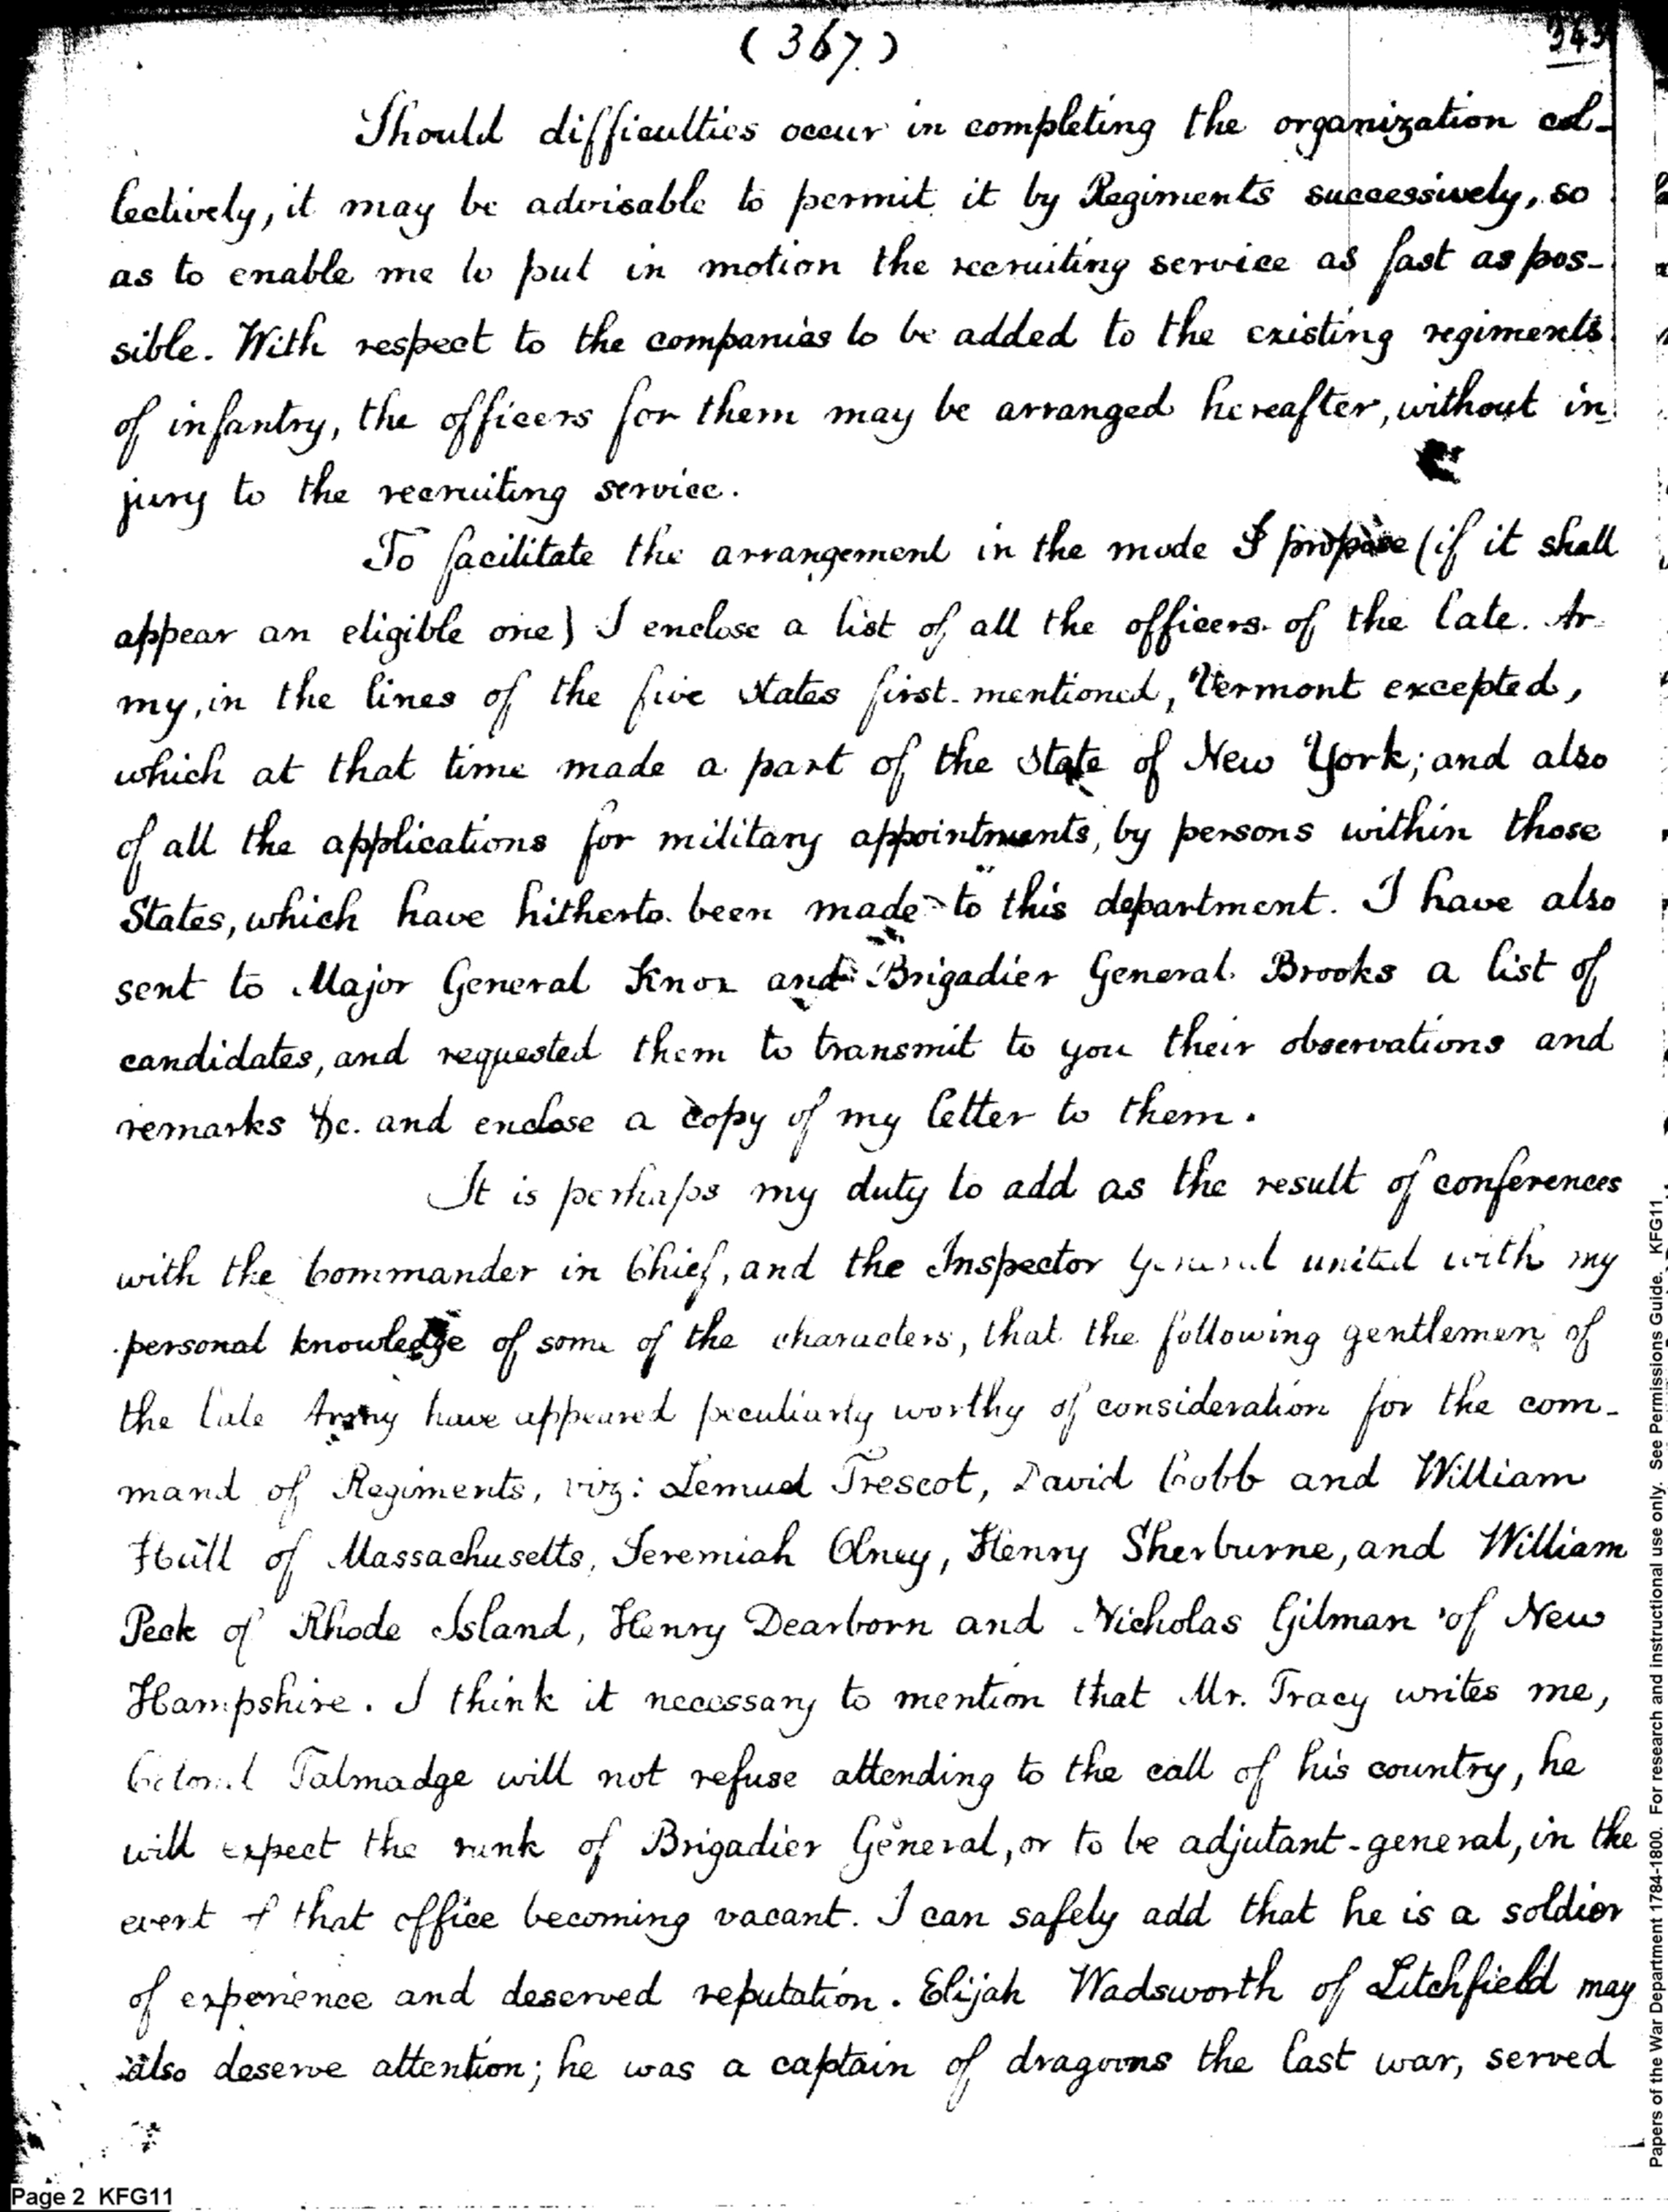 (367)
343
Should difficulties occur in completing the organization col-
lectively, it may be advisable to permit it by Regiments successively, so
as to enable me to put in motion the recruiting service as fast as pos-
sible. With respect to the companies to be added to the existing regiments
of infantry, the officers for them may be arranged hereafter, without in-
jury to the recruiting service.
To facilitate the arrangement in the mode I propose (if it shall
appear an eligible one) I enclose a list of all the officers of the late Ar-
my, in the lines of the five States first mentioned, Vermont excepted,
which at that time made a part of the State of New York; and also
of all the applications for military appointments, by persons within those
States, which have hitherto been made to this department. I have also
sent to Major General Knox and Brigadier General Brooks a list of
candidates, and requested them to transmit to you their observations and
remarks &c. and enclose a copy of my letter to them.
It is perhaps my duty to add as the result of conferences
with the Commander in Chief, and the Inspector General united with my
personal knowledge of some of the characters, that the following gentlemen of
the late Army have appeared peculiarly worthy of consideration for the com-
mand of Regiments, viz: Lemuel Trescot, David Cobb and William
Hull of Massachusetts, Jeremiah Olney, Henry Sherburne, and William
Peck of Rhode Island, Henry Dearborn and Nicholas Gilman of New
Hampshire. I think it necessary to mention that Mr. Tracy writes me,
Colonel Talmadge will not refuse attending to the call of his country, he
will expect the rank of Brigadier General, or to be adjutant-general, in the
event of that office becoming vacant. I can safely add that he is a soldier
of experience and deserved reputation. Elijah Wadsworth of Litchfield may
also deserve attention; he was a captain of dragoons the last war, served
Page 2 KFG11
Papers of the War Department 1784-1800. For research and instructional use only. See Permissions Guide. KFG11